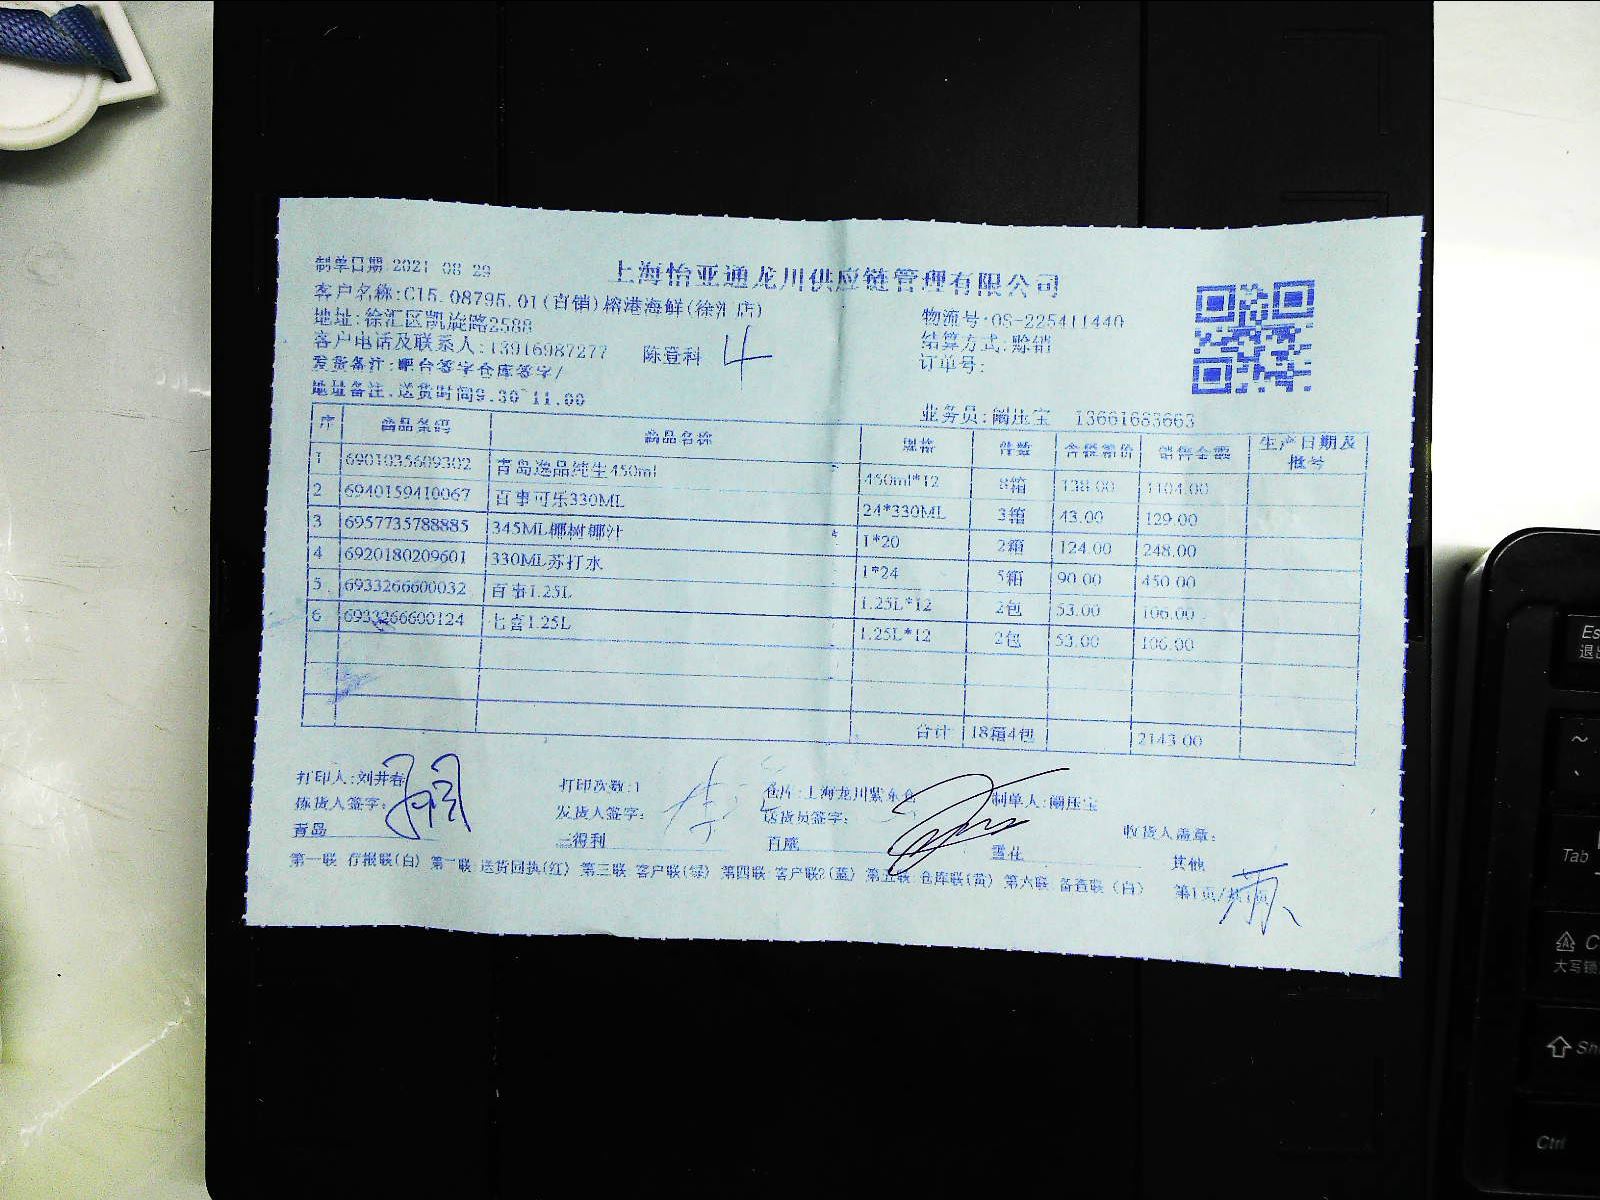 上海怡亚通龙川供应链管理有限公司
制单日期 2021-08-29
客户名称:C15.08795.01(直销)榕港海鲜(徐汇店)
物流号:OS-225411440
地址:徐汇区凯旋路2588
结算方式:赊销
客户电话及联系人:13916987277 陈登科 4
订单号:
发货备注:吧台签字仓库签字/
地址备注:送货时间9.30~11.00
业务员:阚压宝 13661683663
序 商品条码 商品名称 规格 件数 含税箱价 销售金额 生产日期及批号
1 6901035609302 青岛逸品纯生450ml 450ml*12 8箱 138.00 1104.00
2 6940159410067 百事可乐330ML 24*330ML 3箱 43.00 129.00
3 6957735788885 345ML椰树椰汁 * 1*20 2箱 124.00 248.00
4 6920180209601 330ML苏打水 1*24 5箱 90.00 450.00
5 6933266600032 百事1.25L 1.25L*12 2包 53.00 106.00
6 6933266600124 七喜1.25L 1.25L*12 2包 53.00 106.00
合计 18箱4包 2143.00
打印人:刘井春 打印次数:1 仓库:上海龙川紫东仓 制单人:阚压宝
拣货人签字: 发货人签字: 送货员签字: 收货人盖章:
青岛 三得利 百威 雪花 其他
第一联 存根联(白) 第二联 送货回执(红) 第三联 客户联(绿) 第四联 客户联2(蓝) 第五联 仓库联(黄) 第六联 备查联(白) 第1页/共1页
Es
退出
~
Tab
大写锁
Sh
Ctrl